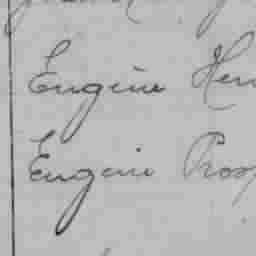 Eugène Hen
Eugène Prosp